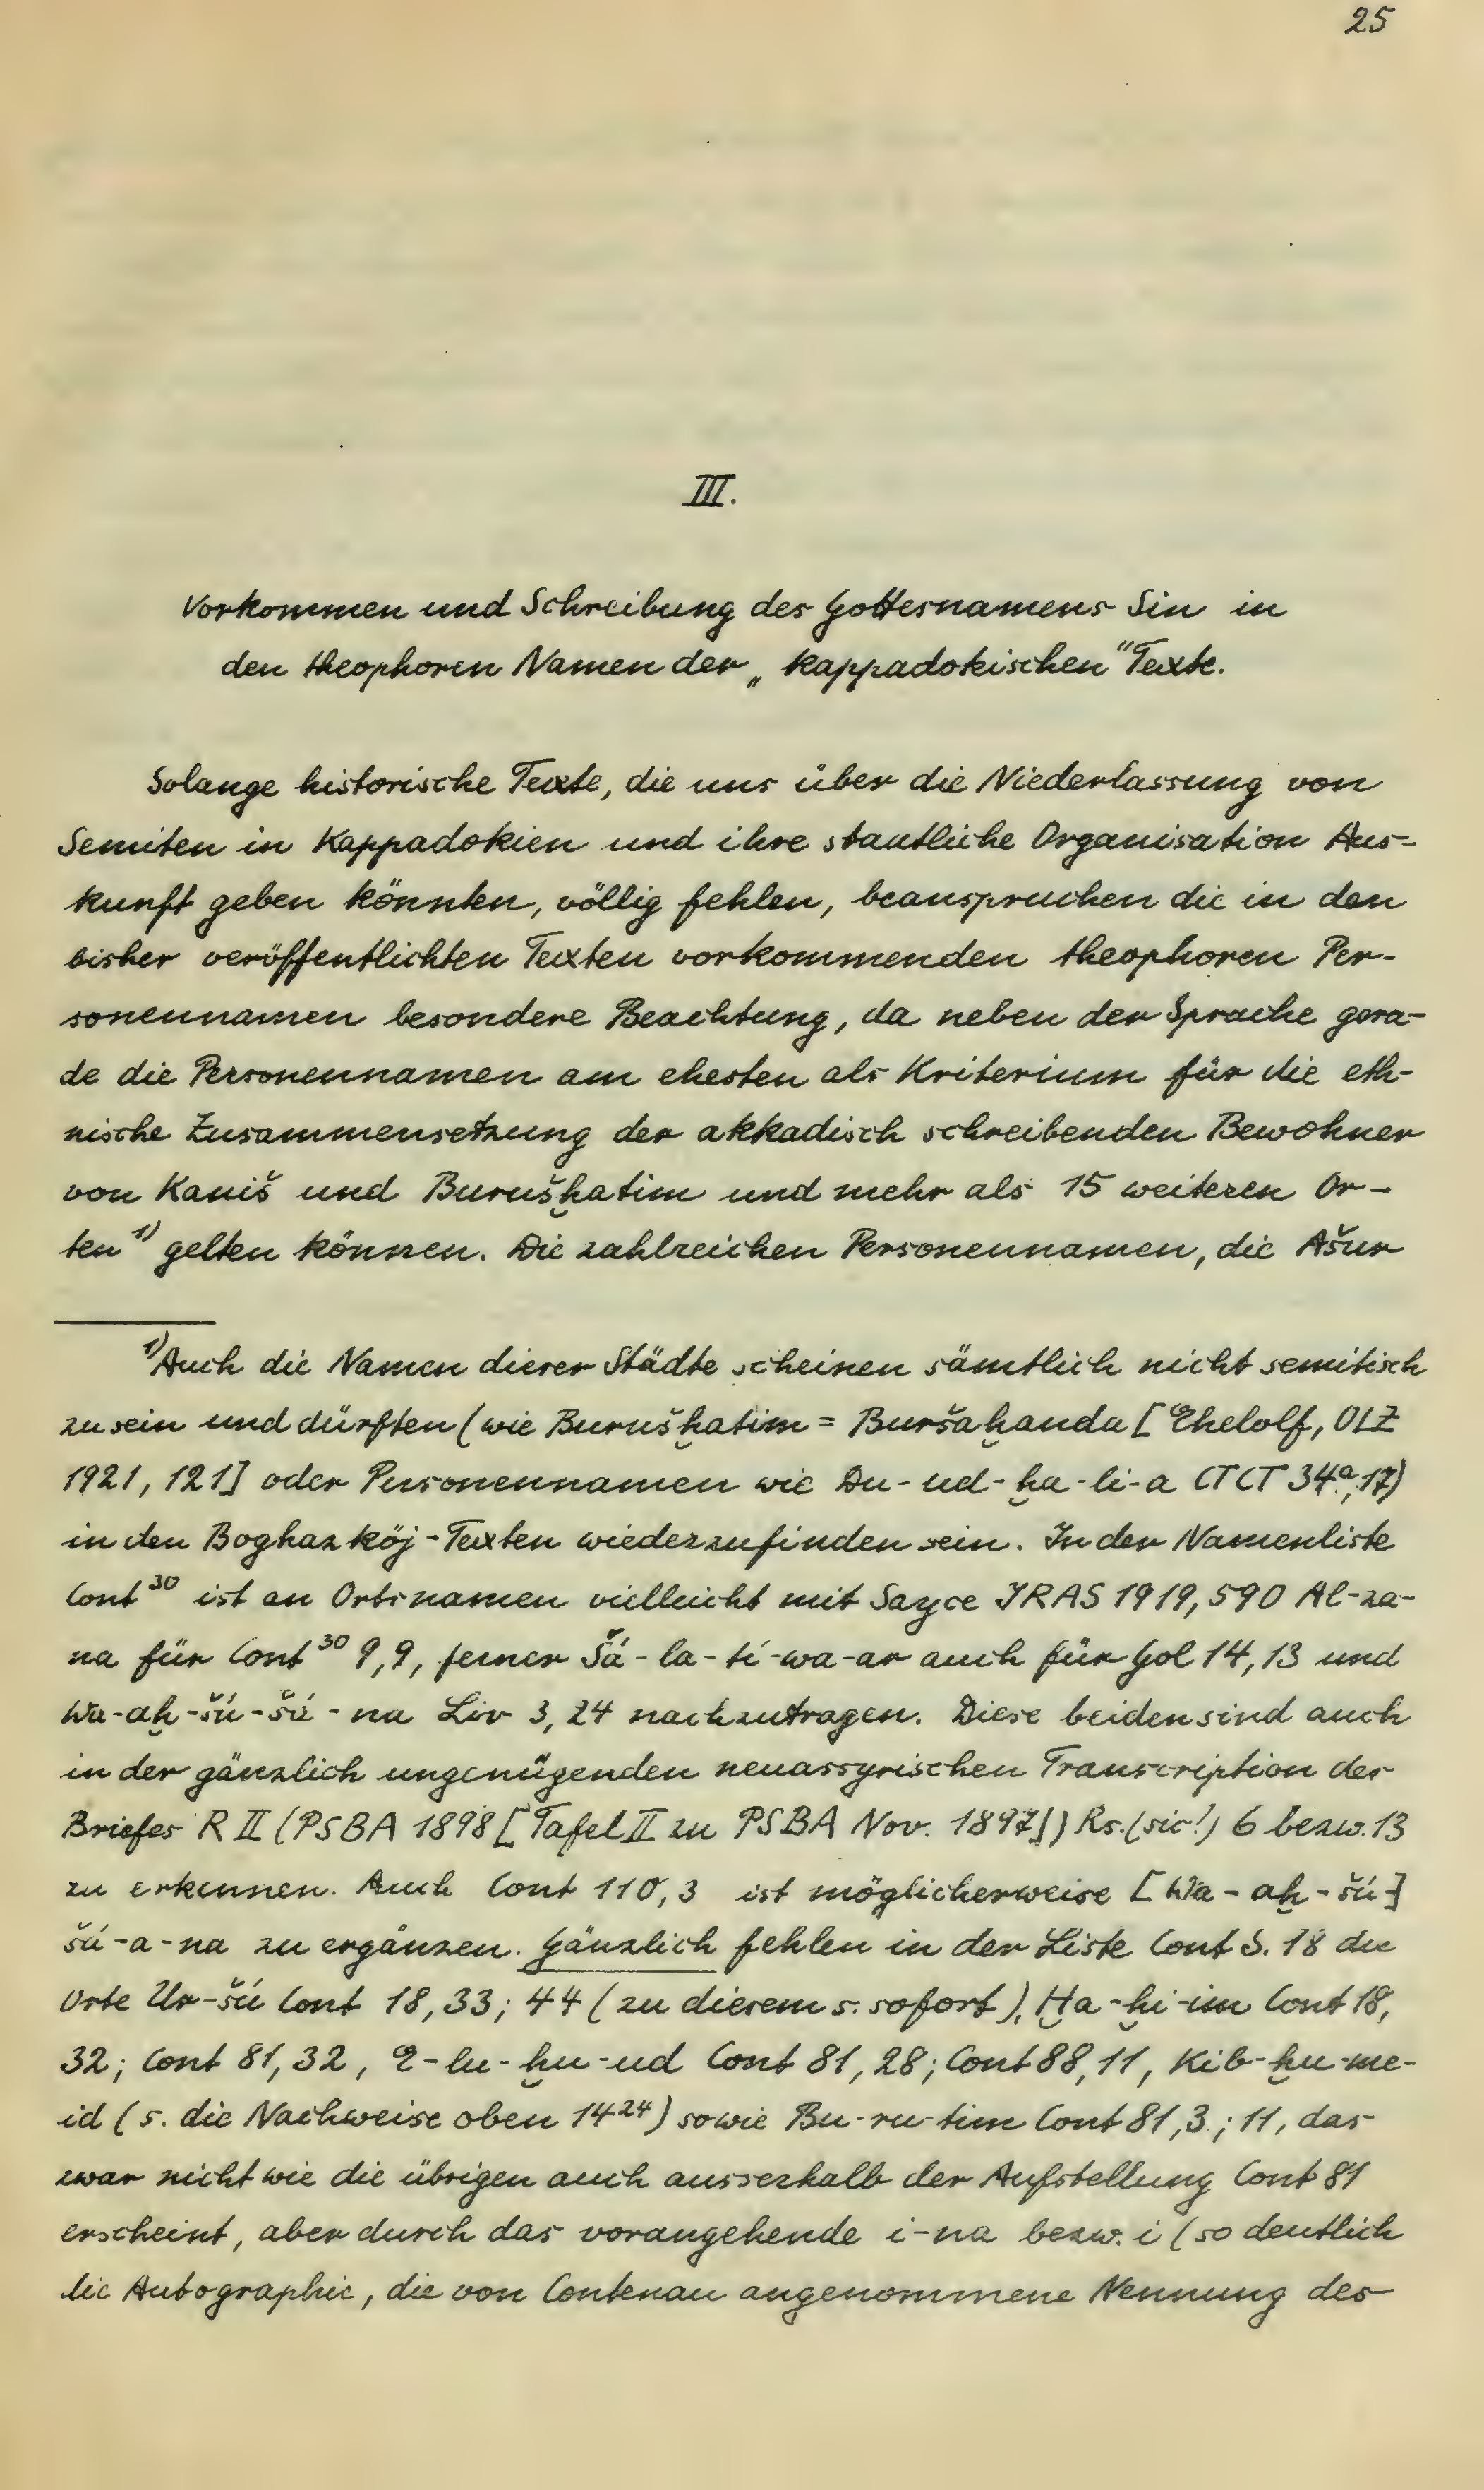 25
III.
Vorkommen und Schreibung des Gottesnamens Sin in
den theophoren Namen der „kappadokischen" Texte.
Solange historische Texte, die uns über die Niederlassung von
Semiten in Kappadokien und ihre staatliche Organisation Aus-
kunft geben könnten, völlig fehlen, beanspruchen die in den
bisher veröffentlichten Texten vorkommenden theophoren Per-
sonennamen besondere Beachtung, da neben der Sprache gera-
de die Personennamen am ehesten als Kriterium für die eth-
nische Zusammensetzung der akkadisch schreibenden Bewohner
von Kaniš und Burušḫatim und mehr als 15 weiteren Or-
ten ¹⁾ gelten können. Die zahlreichen Personennamen, die Ašur
¹⁾Auch die Namen dieser Städte scheinen sämtlich nicht semitisch
zu sein und dürften (wie Burušḫatim = Buršaḫanda [Ehelolf, OLZ
1921, 121] oder Personennamen wie Du-ud-ḫa-li-a CTCT 34ᵃ, 17)
in den Boghazköj-Texten wiederzufinden sein. In der Namenliste
Cont³⁰ ist an Ortsnamen vielleicht mit Sayce JRAS 1919, 590 Al-za-
na für Cont³⁰ 9,9, ferner Šá-la-tí-wa-ar auch für Gol 14,13 und
Wa-aḫ-šú-šá-na Liv 3,24 nachzutragen. Diese beiden sind auch
in der gänzlich ungenügenden neuassyrischen Transcription des
Briefes R II (PSBA 1898 [Tafel II zu PSBA Nov. 1897]) Rs. (sic!) 6 bezw. 13
zu erkennen. Auch Cont 110,3 ist möglicherweise [Wa-aḫ-šú-]
šá-a-na zu ergänzen. Gänzlich fehlen in der Liste Cont S. 18 die
Orte Ur-šú Cont 18,33; 44 (zu diesem s. sofort), Ḫa-ḫi-im Cont 18,
32; Cont 81,32, E-lu-ḫu-ud Cont 81,28; Cont 88,11, Kib-ḫu-me-
id (s. die Nachweise oben 14²⁴) sowie Bu-ru-tim Cont 81,3; 11, das
zwar nicht wie die übrigen auch ausserhalb der Aufstellung Cont 81
erscheint, aber durch das vorangehende i-na bezw. i (so deutlich
die Autographie, die von Contenau angenommene Nennung des